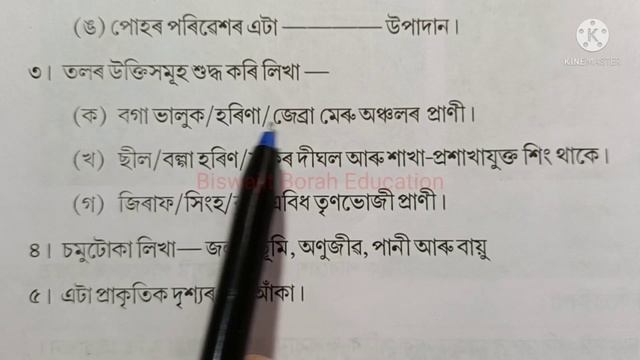 (ঙ) পোহৰ পৰিৱেশৰ এটা ———— উপাদান।
KINEMASTER
৩। তলৰ উক্তিসমূহ শুদ্ধ কৰি লিখা —
(ক) বগা ভালুক/হৰিণা/জেব্ৰা মেৰু অঞ্চলৰ প্ৰাণী।
(খ) ছীল/বল্গা হৰিণ/ দীঘল আৰু শাখা-প্ৰশাখাযুক্ত শিং থাকে।
Biswajit Borah Education
(গ) জিৰাফ/সিংহ/ এবিধ তৃণভোজী প্ৰাণী।
৪। চমুটোকা লিখা— অণুজীৱ, পানী আৰু বায়ু
৫। এটা প্ৰাকৃতিক দৃশ্যৰ আঁকা।